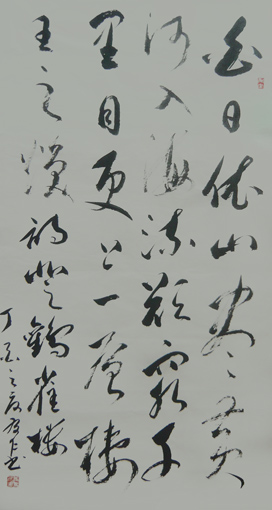 白日依山尽黄
河入海流欲窮千
里目更上一層樓
王之渙詩登鸛雀樓
丁亥之夏